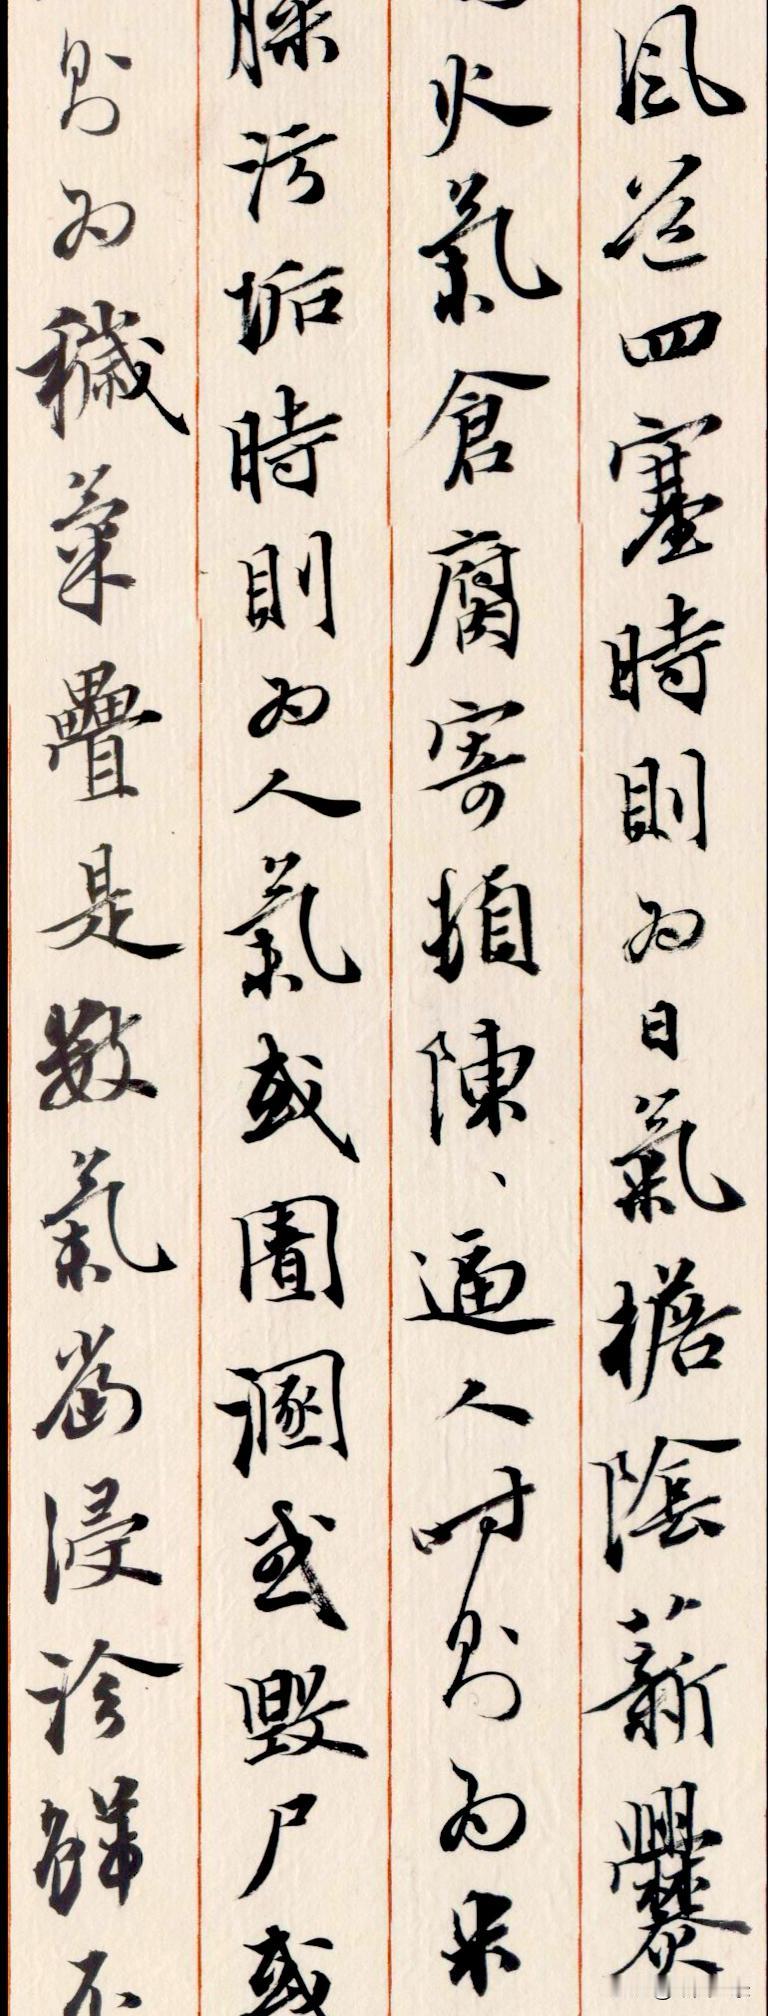 風道四塞時則為日氣檐陰薪爨
火氣倉腐寄頓陳、逼人時則為米
臊污垢時則為人氣或圊溷或毀尸或
則為穢氣疊是數氣當侵沴鮮不